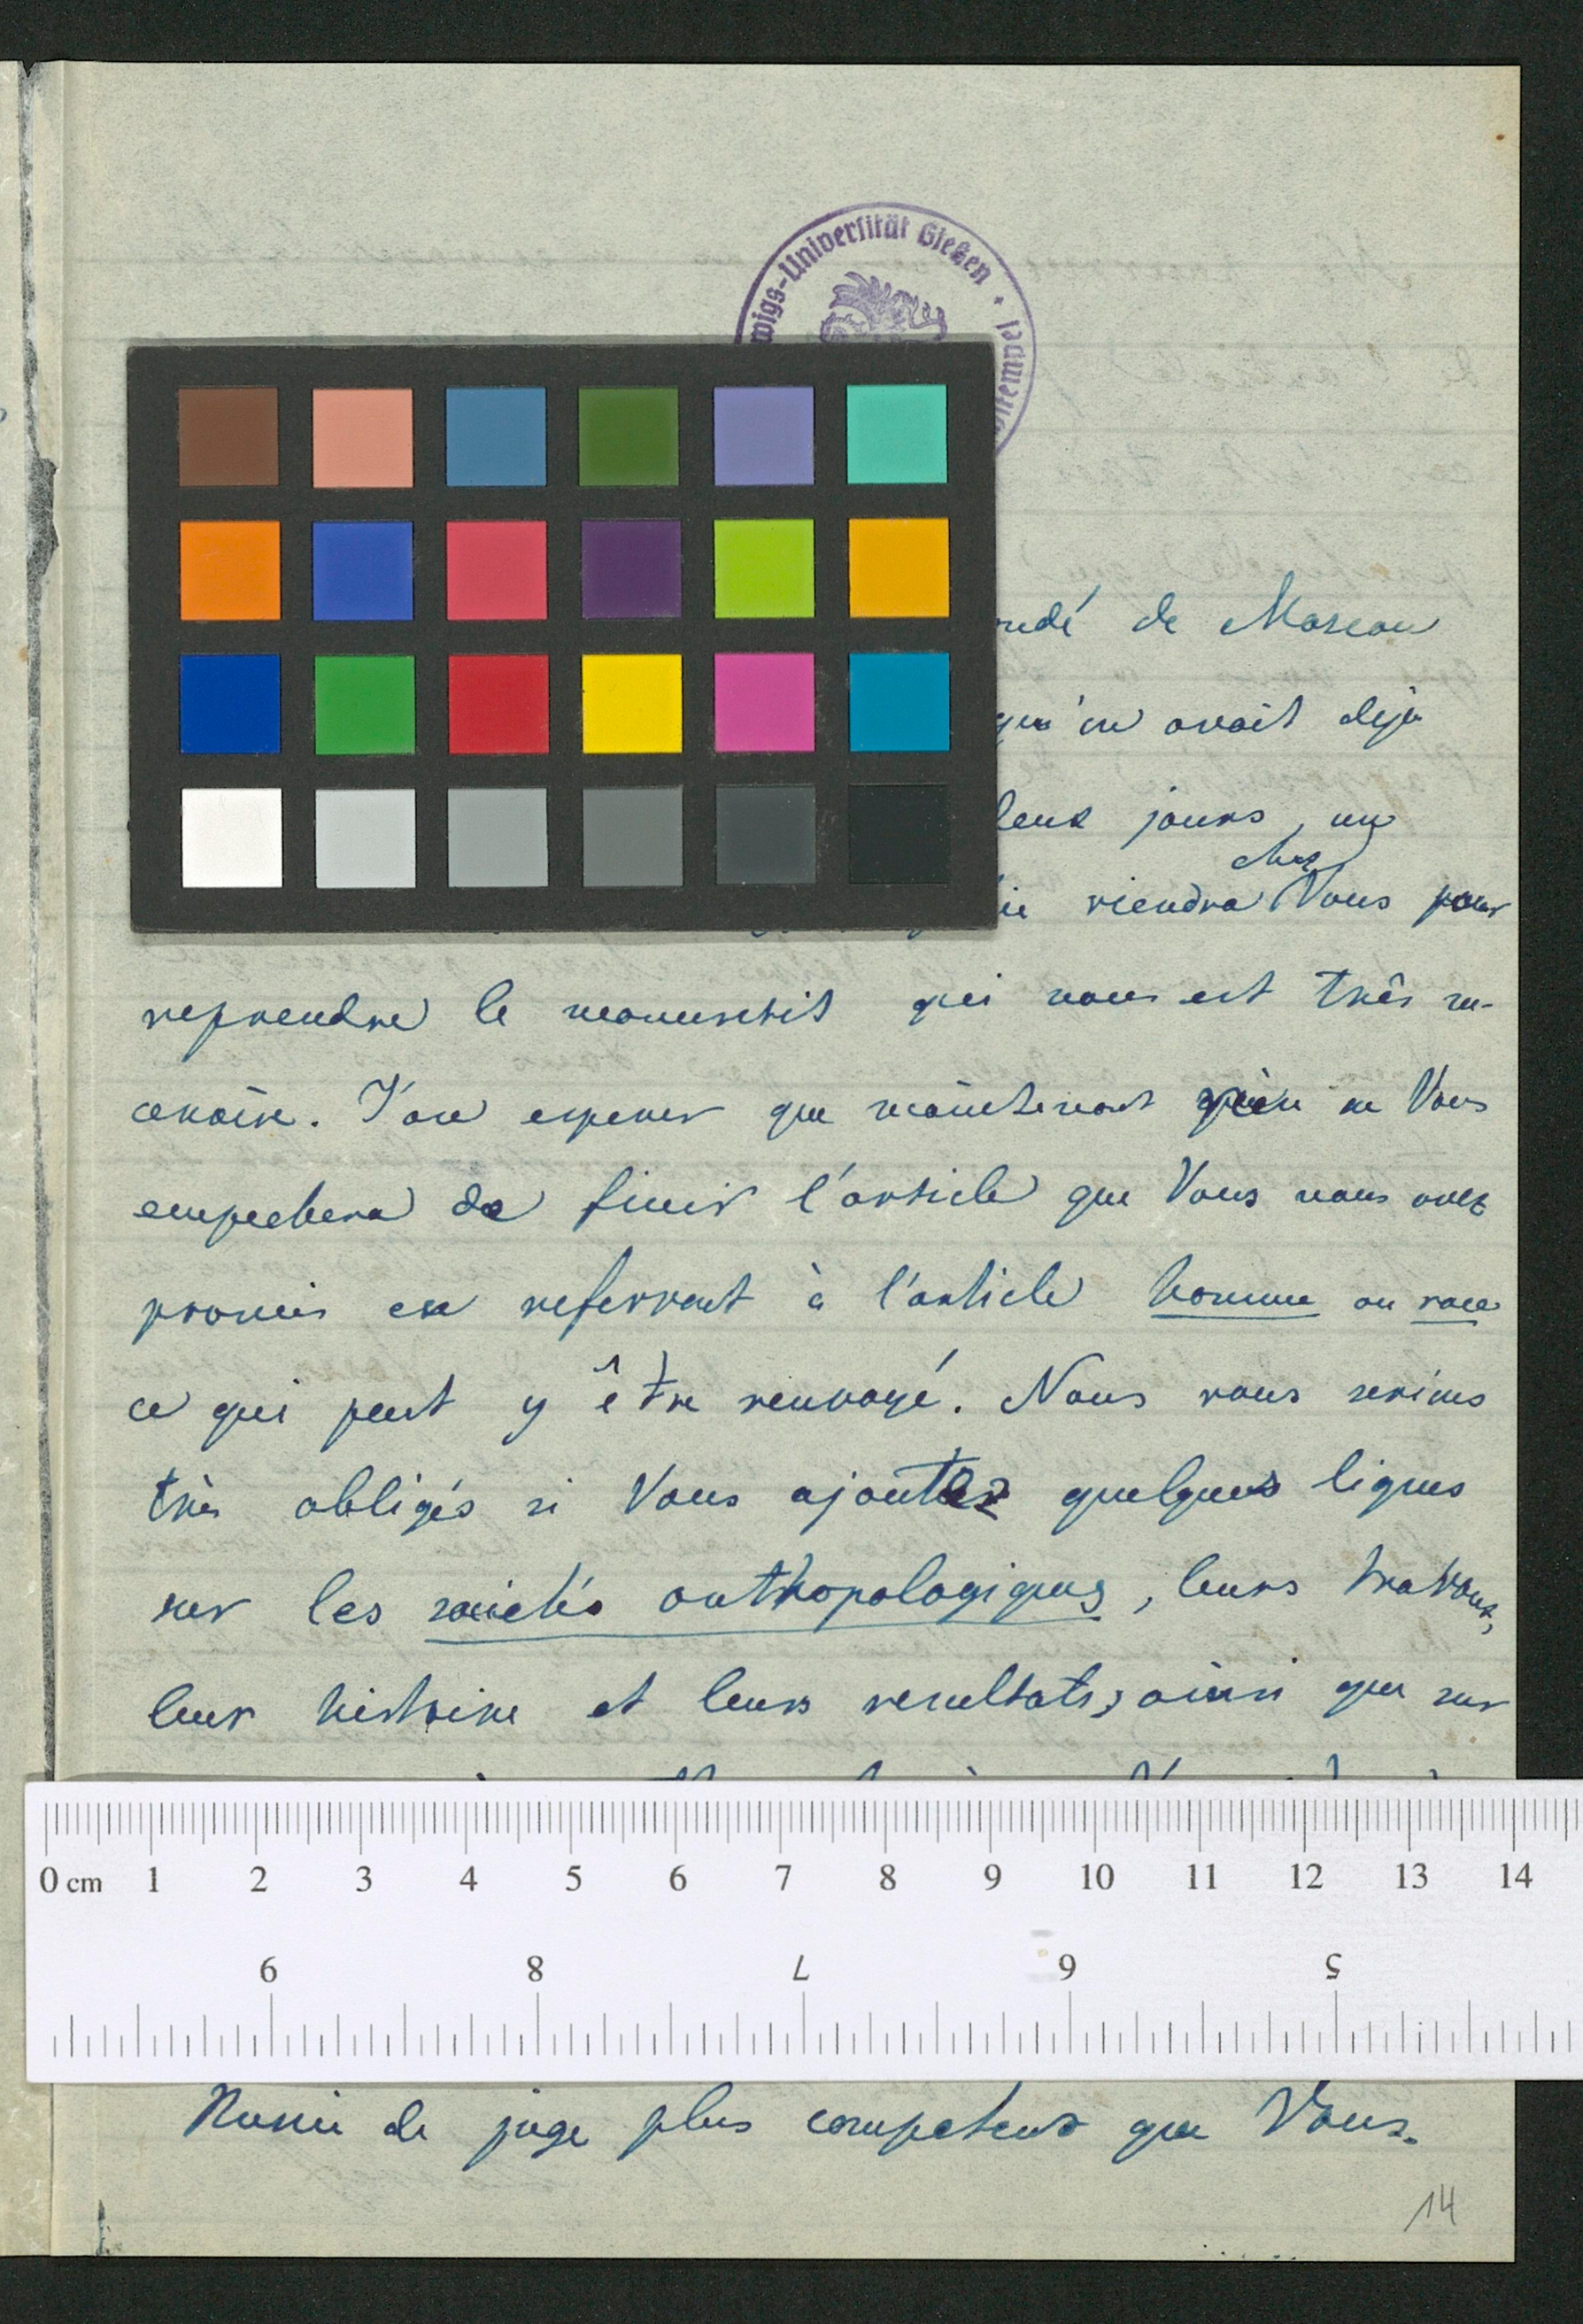 wigs-Universität Gießen
de Moscou
qu'on avait déja
jours, un
chez
viendra Vous pour
reprendre le manuscrit qui nous est très ne-
cessaire. J'ose esperer que maintenant rien ne Vous
empechera de finir l'article que Vous nous avez
promis en referrant à l'article homme ou race
ce qui peut y être renvoyé. Nous vous serions
très obligés si Vous ajoutez quelques lignes
sur les sociétés anthropologiques, leurs travaux,
leur histoire et leurs resultats, ainsi que sur
0 cm 1 2 3 4 5 6 7 8 9 10 11 12 13 14
9 8 7 6 5
Russie de juge plus competent que Vous.
14